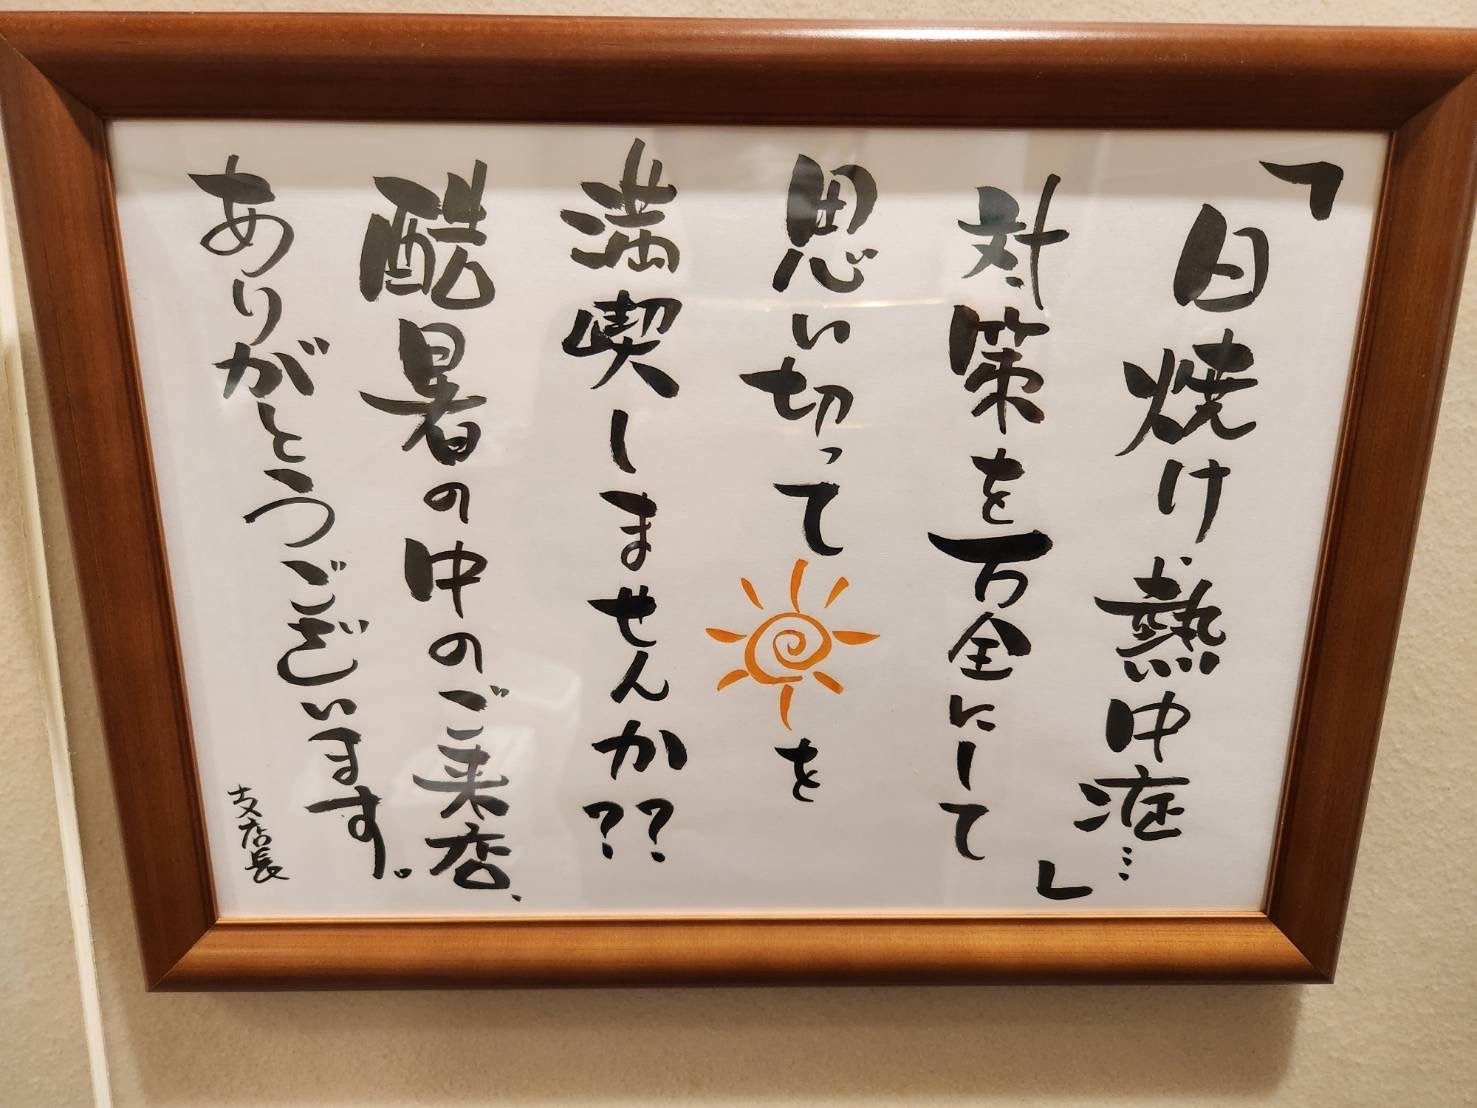 「日焼け、熱中症…」
対策を万全にして
思い切って を
満喫しませんか??
酷暑の中のご来店、
ありがとうございます。
支店長